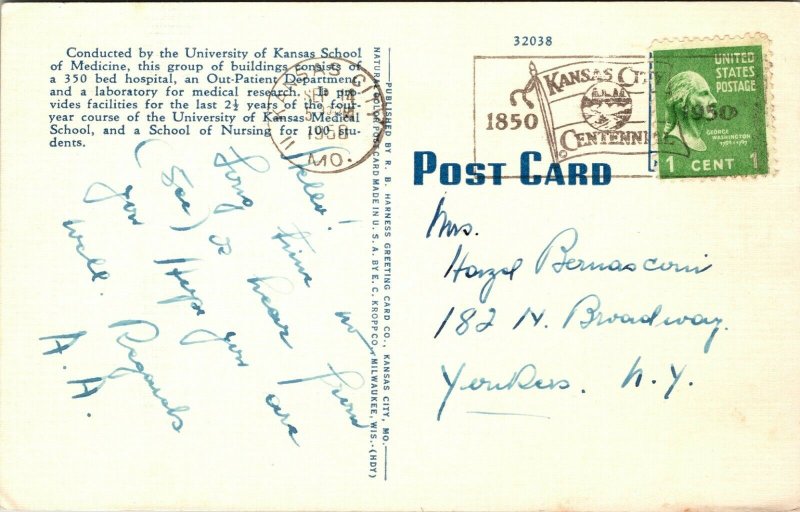 32038
Conducted by the University of Kansas School
of Medicine, this group of buildings consists of
a 350 bed hospital, an Out-Patient Department,
and a laboratory for medical research. It pro-
vides facilities for the last 2½ years of the four-
year course of the University of Kansas Medical
School, and a School of Nursing for 100 stu-
dents.
Hello!
Long time no
(See) to hear from
you Hope you are
well. Regards
A.H.
PUBLISHED BY R. B. HARNESS GREETING CARD CO., KANSAS CITY, MO.
NATURAL COLOR POST CARD MADE IN U. S. A. BY E. C. KROPP CO., MILWAUKEE, WIS.-(HDY)
KANSAS CITY
SEP
1950
MO.
11
KANSAS CITY
1850
1950
CENTENNIAL
UNITED
STATES
POSTAGE
GEORGE
WASHINGTON
1 CENT 1
POST CARD
Mrs.
Hazel Bernasconi
182 N. Broadway.
Yonkers. N.Y.